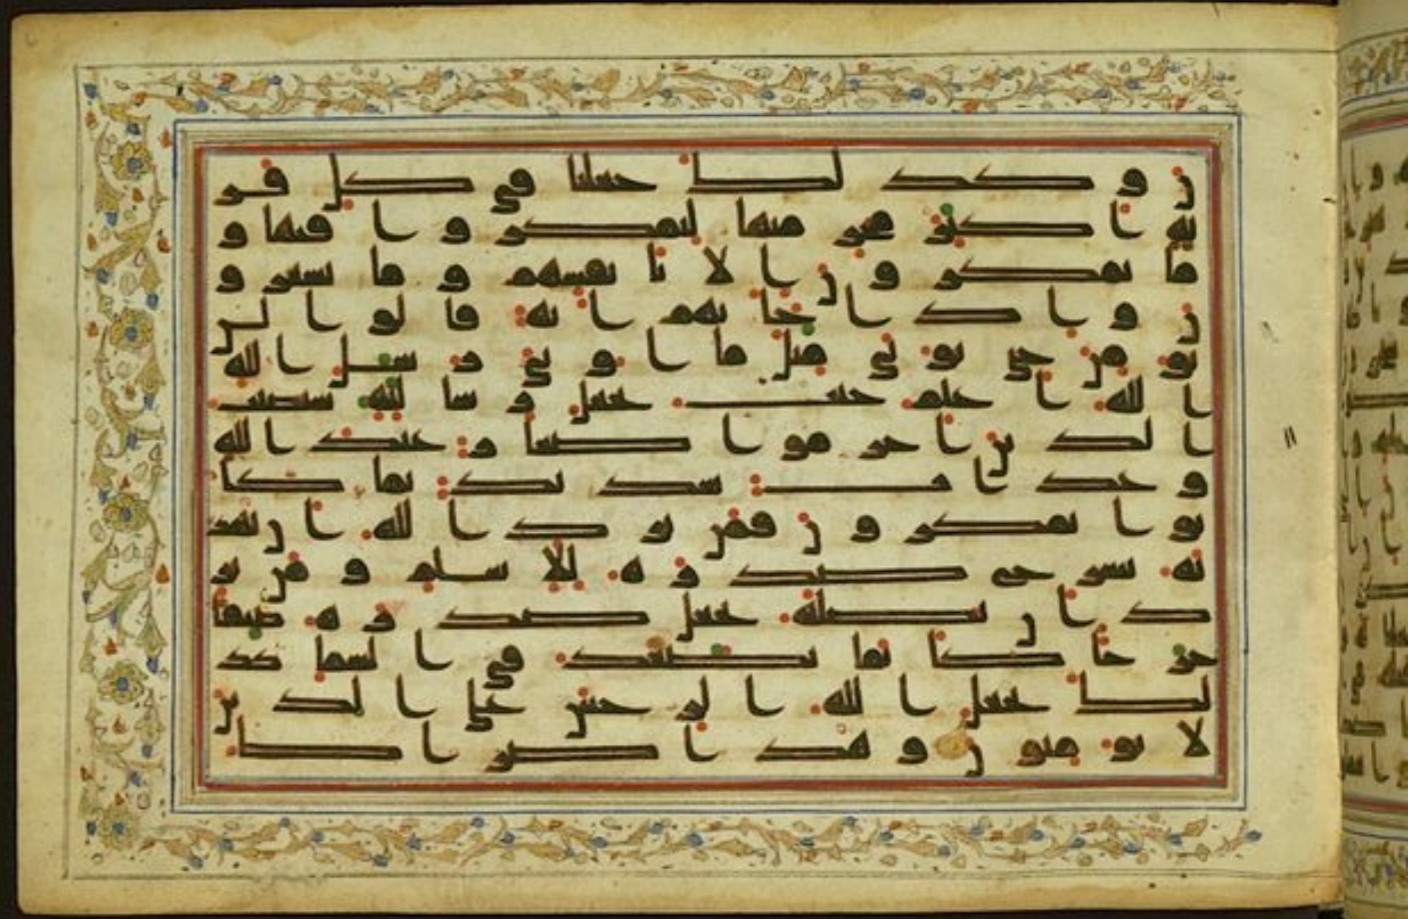 ن وكذلك جعلنا في كل قر
ية اكبر مجرميها ليمكروا فيها و
ما يمكرون الا بانفسهم وما يشعرو
ن واذا جاتهم اية قالوا لن
نومن حتى نوتى مثل ما اوتي رسل الله
الله اعلم حيث يجعل رسالته سيصيب
الذين اجرموا صغار عند الله
وعذاب شديد بما كا
نوا يمكرون فمن يرد الله ان يهد
يه يشرح صدره للاسلم ومن ير
د ان يضله يجعل صدره ضيقا
حرجا كانما يصعد في السما كذ
لك يجعل الله الرجس على الذين
لا يومنون وهذا صراط